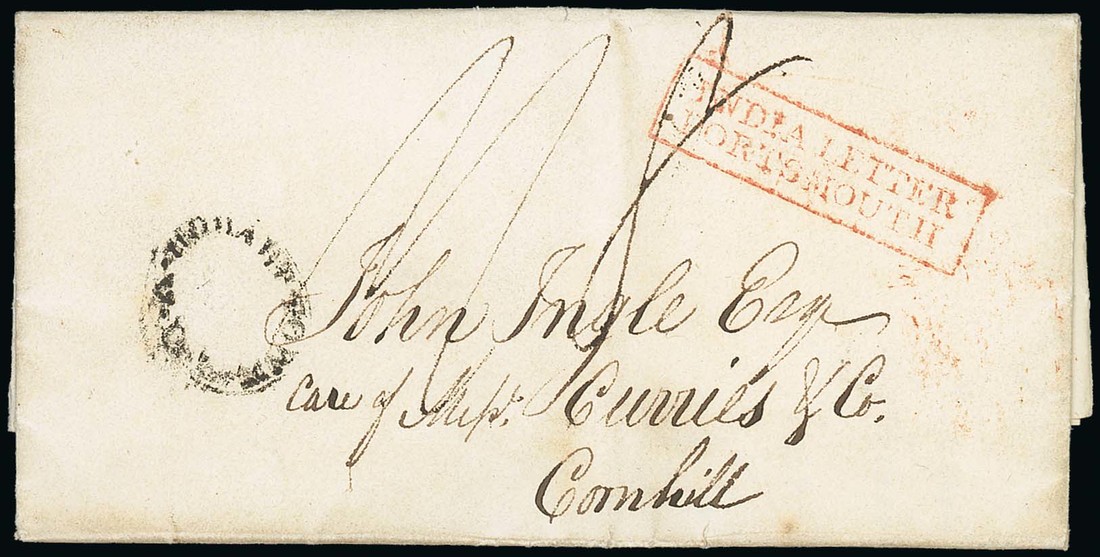 INDIA LETTER
PORTSMOUTH
John Ingle Esqr
Care of Messrs. Curries & Co.
Cornhill